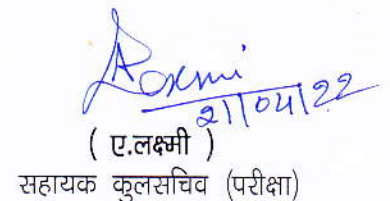 ALaxmi
21/04/22
( ए.लक्ष्मी )
सहायक कुलसचिव (परीक्षा)